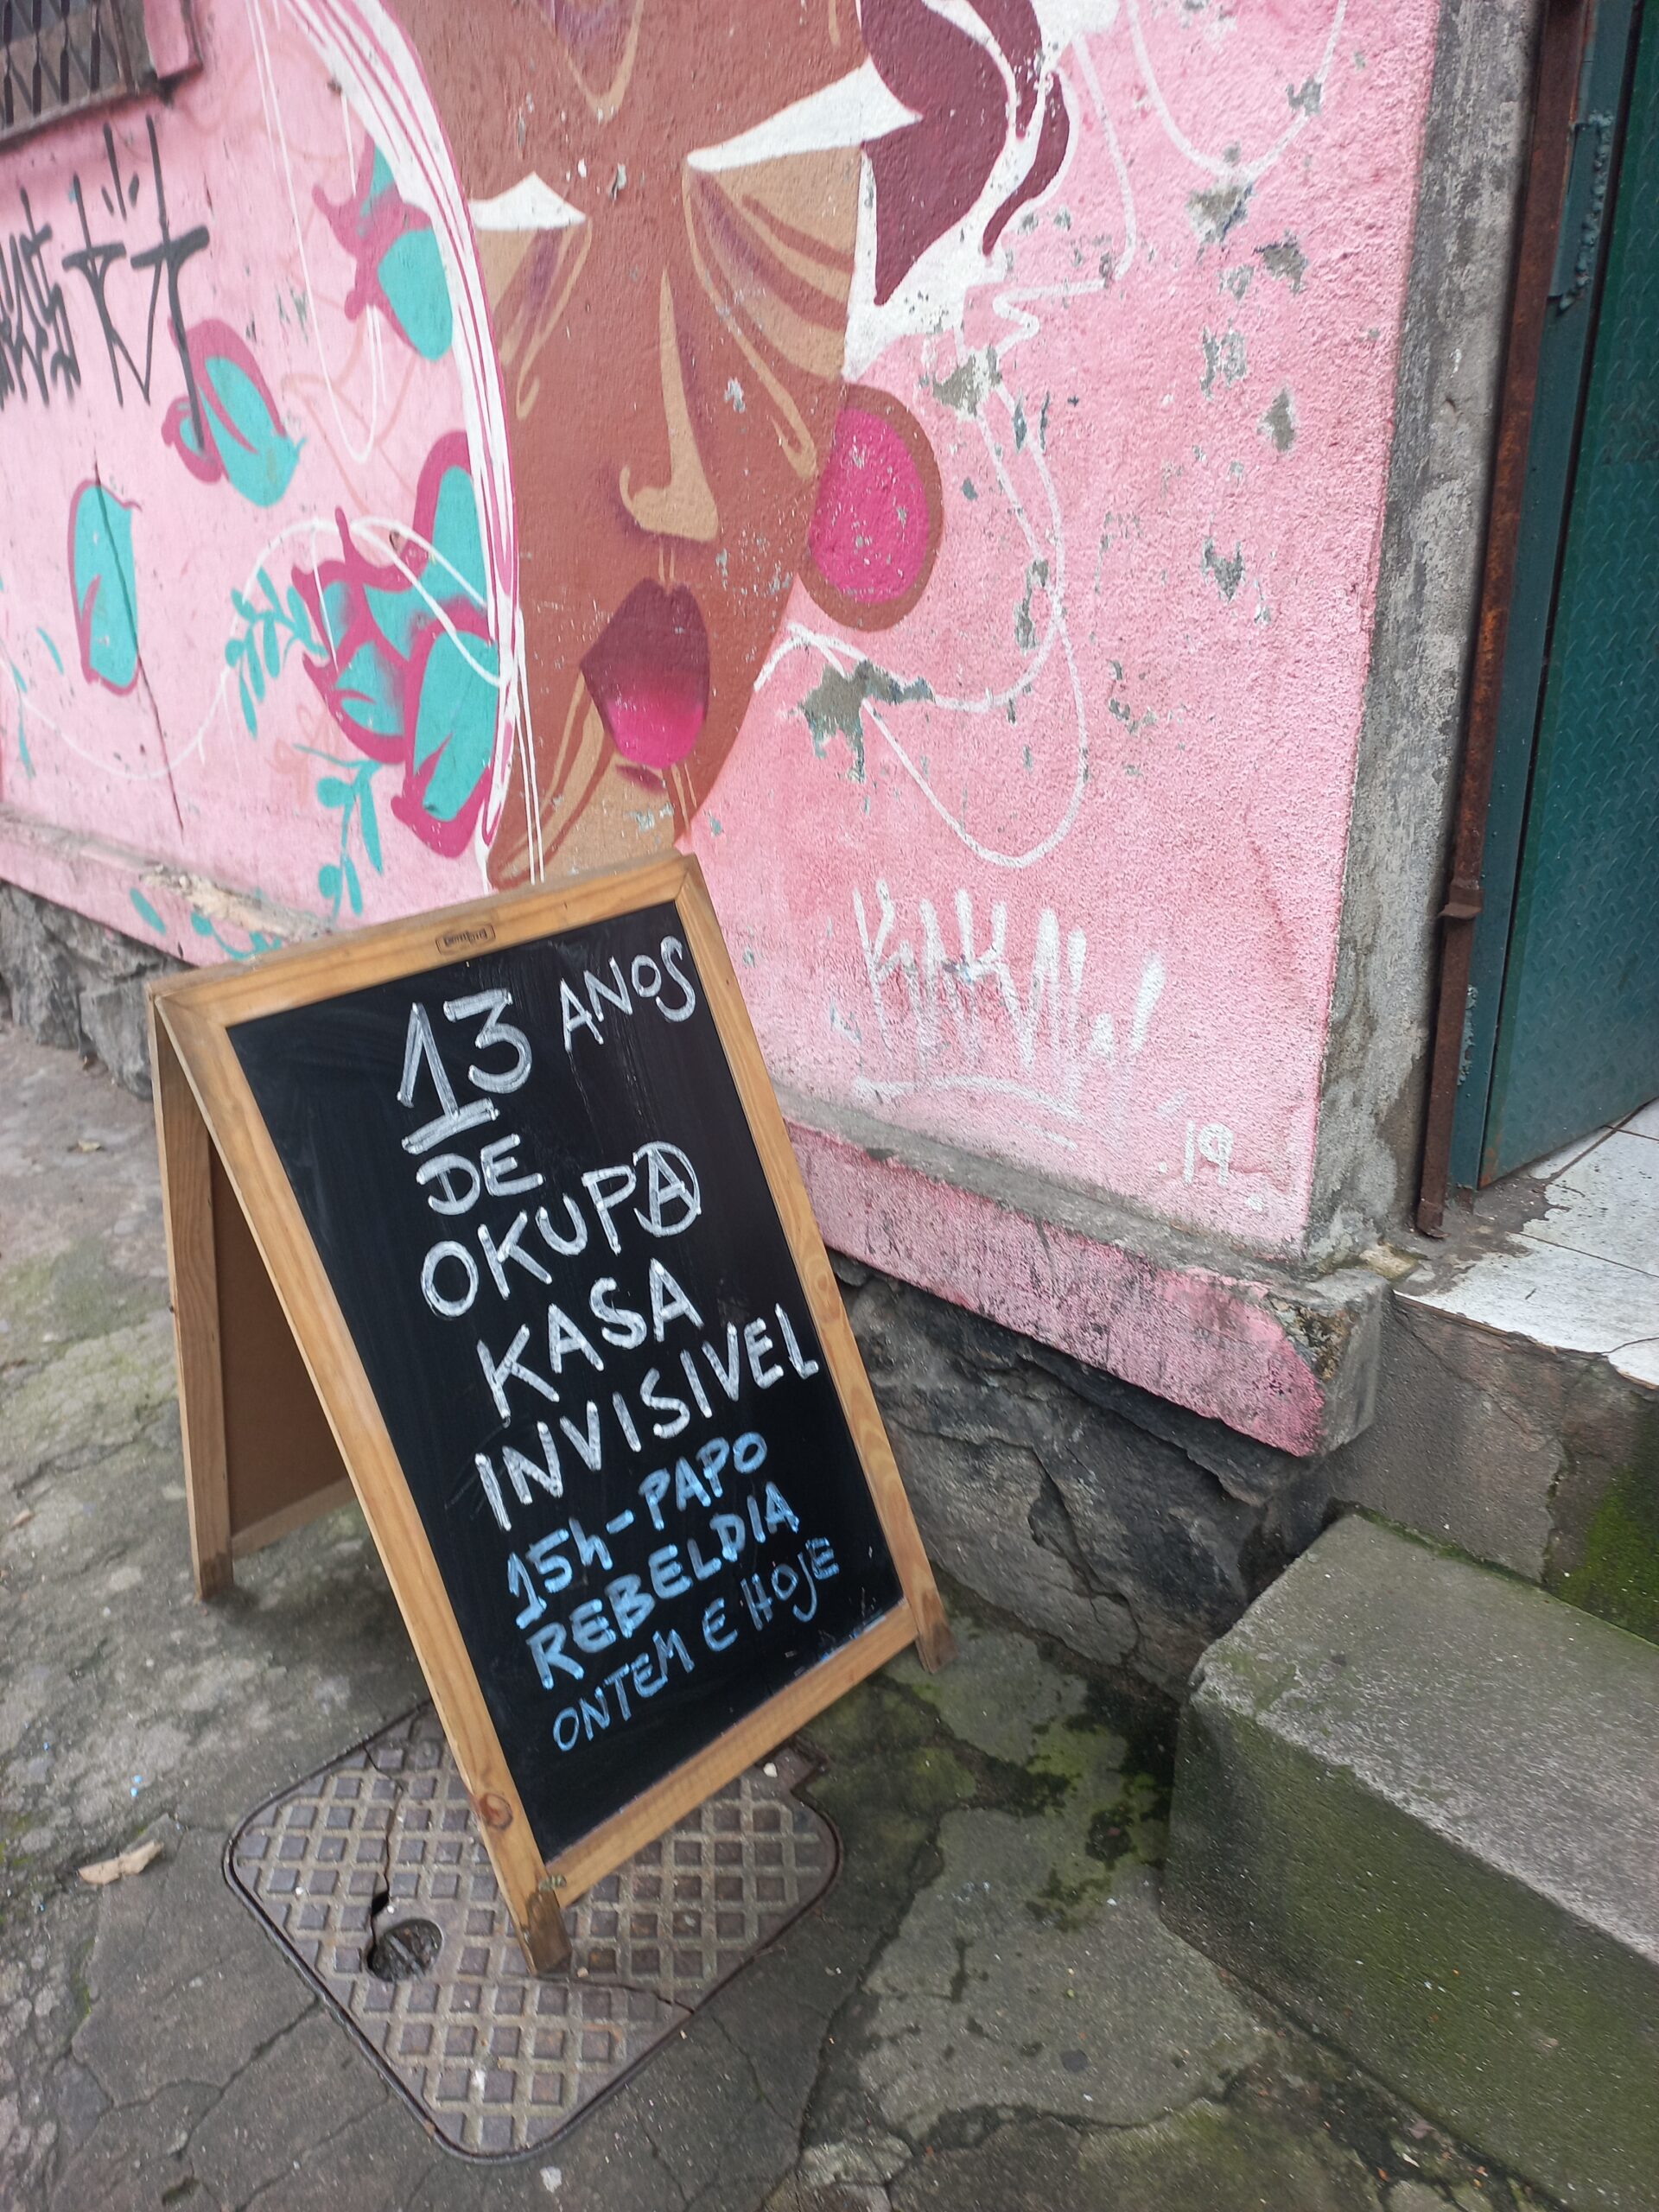 13 ANOS
DE
OKUPA
KASA
INVISIVEL
15h-PAPO
REBELDIA
ONTEM E HOJE
19